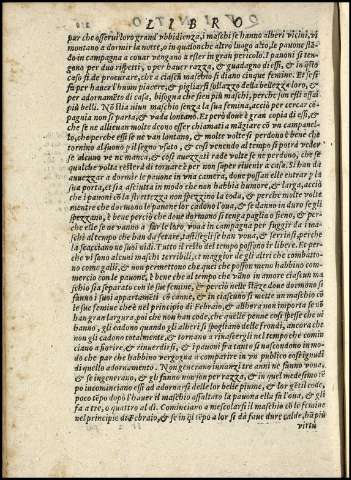 LIBRO
par che osserui lor grand' vbbidienza, i maschi se hanno alberi vicini, vi
montano a dormir la notte, o in qualonche altro luogo alto, le pauone stã
do in campagna a couar vengano à esser in gran pericolo. I pauoni si ten
gono per duo rispetti, o per hauer razza, & guadagno di essi, & in q̃sto
caso si de procurare, che a ciascũ maschio si diano cinque femine. Et se si
fa per hauer l'huom piacere, & pigliarsi sollazzo della bellezza loro, &
per adornamẽto di casa, bisogna che sien piu maschi, perche son essi assai
piu belli. Nõ stia niun maschio senza la sua femina, acciò per cercar cõ-
pagnia non si parta, & vada lontano. Et però doue è gran copia di essi,
che se ne alleuan molte deono esser chiamati à mãgiare cõ vn campanel-
lo, che perche essi se ne van lontano, & molte volte si perdono è bene che
tornino al suono, & cosi venendo al tempo si potrà veder
se alcuno ve ne manca, & cosi auuezzati rade volte se ne perdono, che se
qualche volta resterà di tornare è per non saper riuenir a casa. Si han da
auuezzar a dormir le pauone in vna camera, doue possan elle entrar p la
sua porta, et sia asciutta in modo che non habbia humore, & larga, acciò
che i pauoni cõ la strettezza non spezzino la coda, & perche molte volte
mentre che dormono le pauone lor cadono l'oua, & se danno in duro se gli
spezzano, è bene perciò che doue dormono si tenga paglia o fieno, & per-
che elle se ne vanno a far le loro uoua in campagna per fuggir da i ma-
schi al tempo che han da fetare, tastisegli se han voua, & serrinsi, perche
la facciano ne suoi nidi. Tutto il resto del tempo possono ir libere. Et per
che vi sono alcuni maschi terribili, et maggior de gli altri che combatto-
no come galli, & non permettono che quei che posson meno habbino com-
mercio con le pauone, è bene che al tempo che vãno in amore ciascun ma
schio sia separato con le sue femine, & perciò nelle stãze doue dormono si
fanno i suoi appartamẽti cõ canne, & in ciascuno si mette un maschio cõ
le sue femine che è nel principio di Febraio, & albora non importa se vã
han gran largura, poi che non han code, che quelle penne cosi spesse che ui
hanno, gli cadono quando gli alberi si spogliano delle frondi, ancora che
non gli cadono totalmente, & tornano a rinascergli nel tempo che comin
ciano a fiorire, & rinuerdirsi, & i pauoni fra tanto si nascondono in mo-
do che par che habbino vergogna a comparire in vn publico cosi ignudi
di quello adornamento. Non generano innanzi tre anni ne fanno voua,
& se ingenerano, & gli fanno non son per razza, & in quel medesimo tẽ
po incominciano essi ad adornarsi delle lor belle piume, & lor gẽtil code,
poco tẽpo dopò l'hauer il maschio assaltato la pauona ella fa l'oua, & gli
fa a tre, o quattro al di. Cominciano a mescolarsi il maschio cõ le femine
nel principio di Febraio, & se in q̃l tẽpo a lor si dà faue dure calde, hã piu
virtù